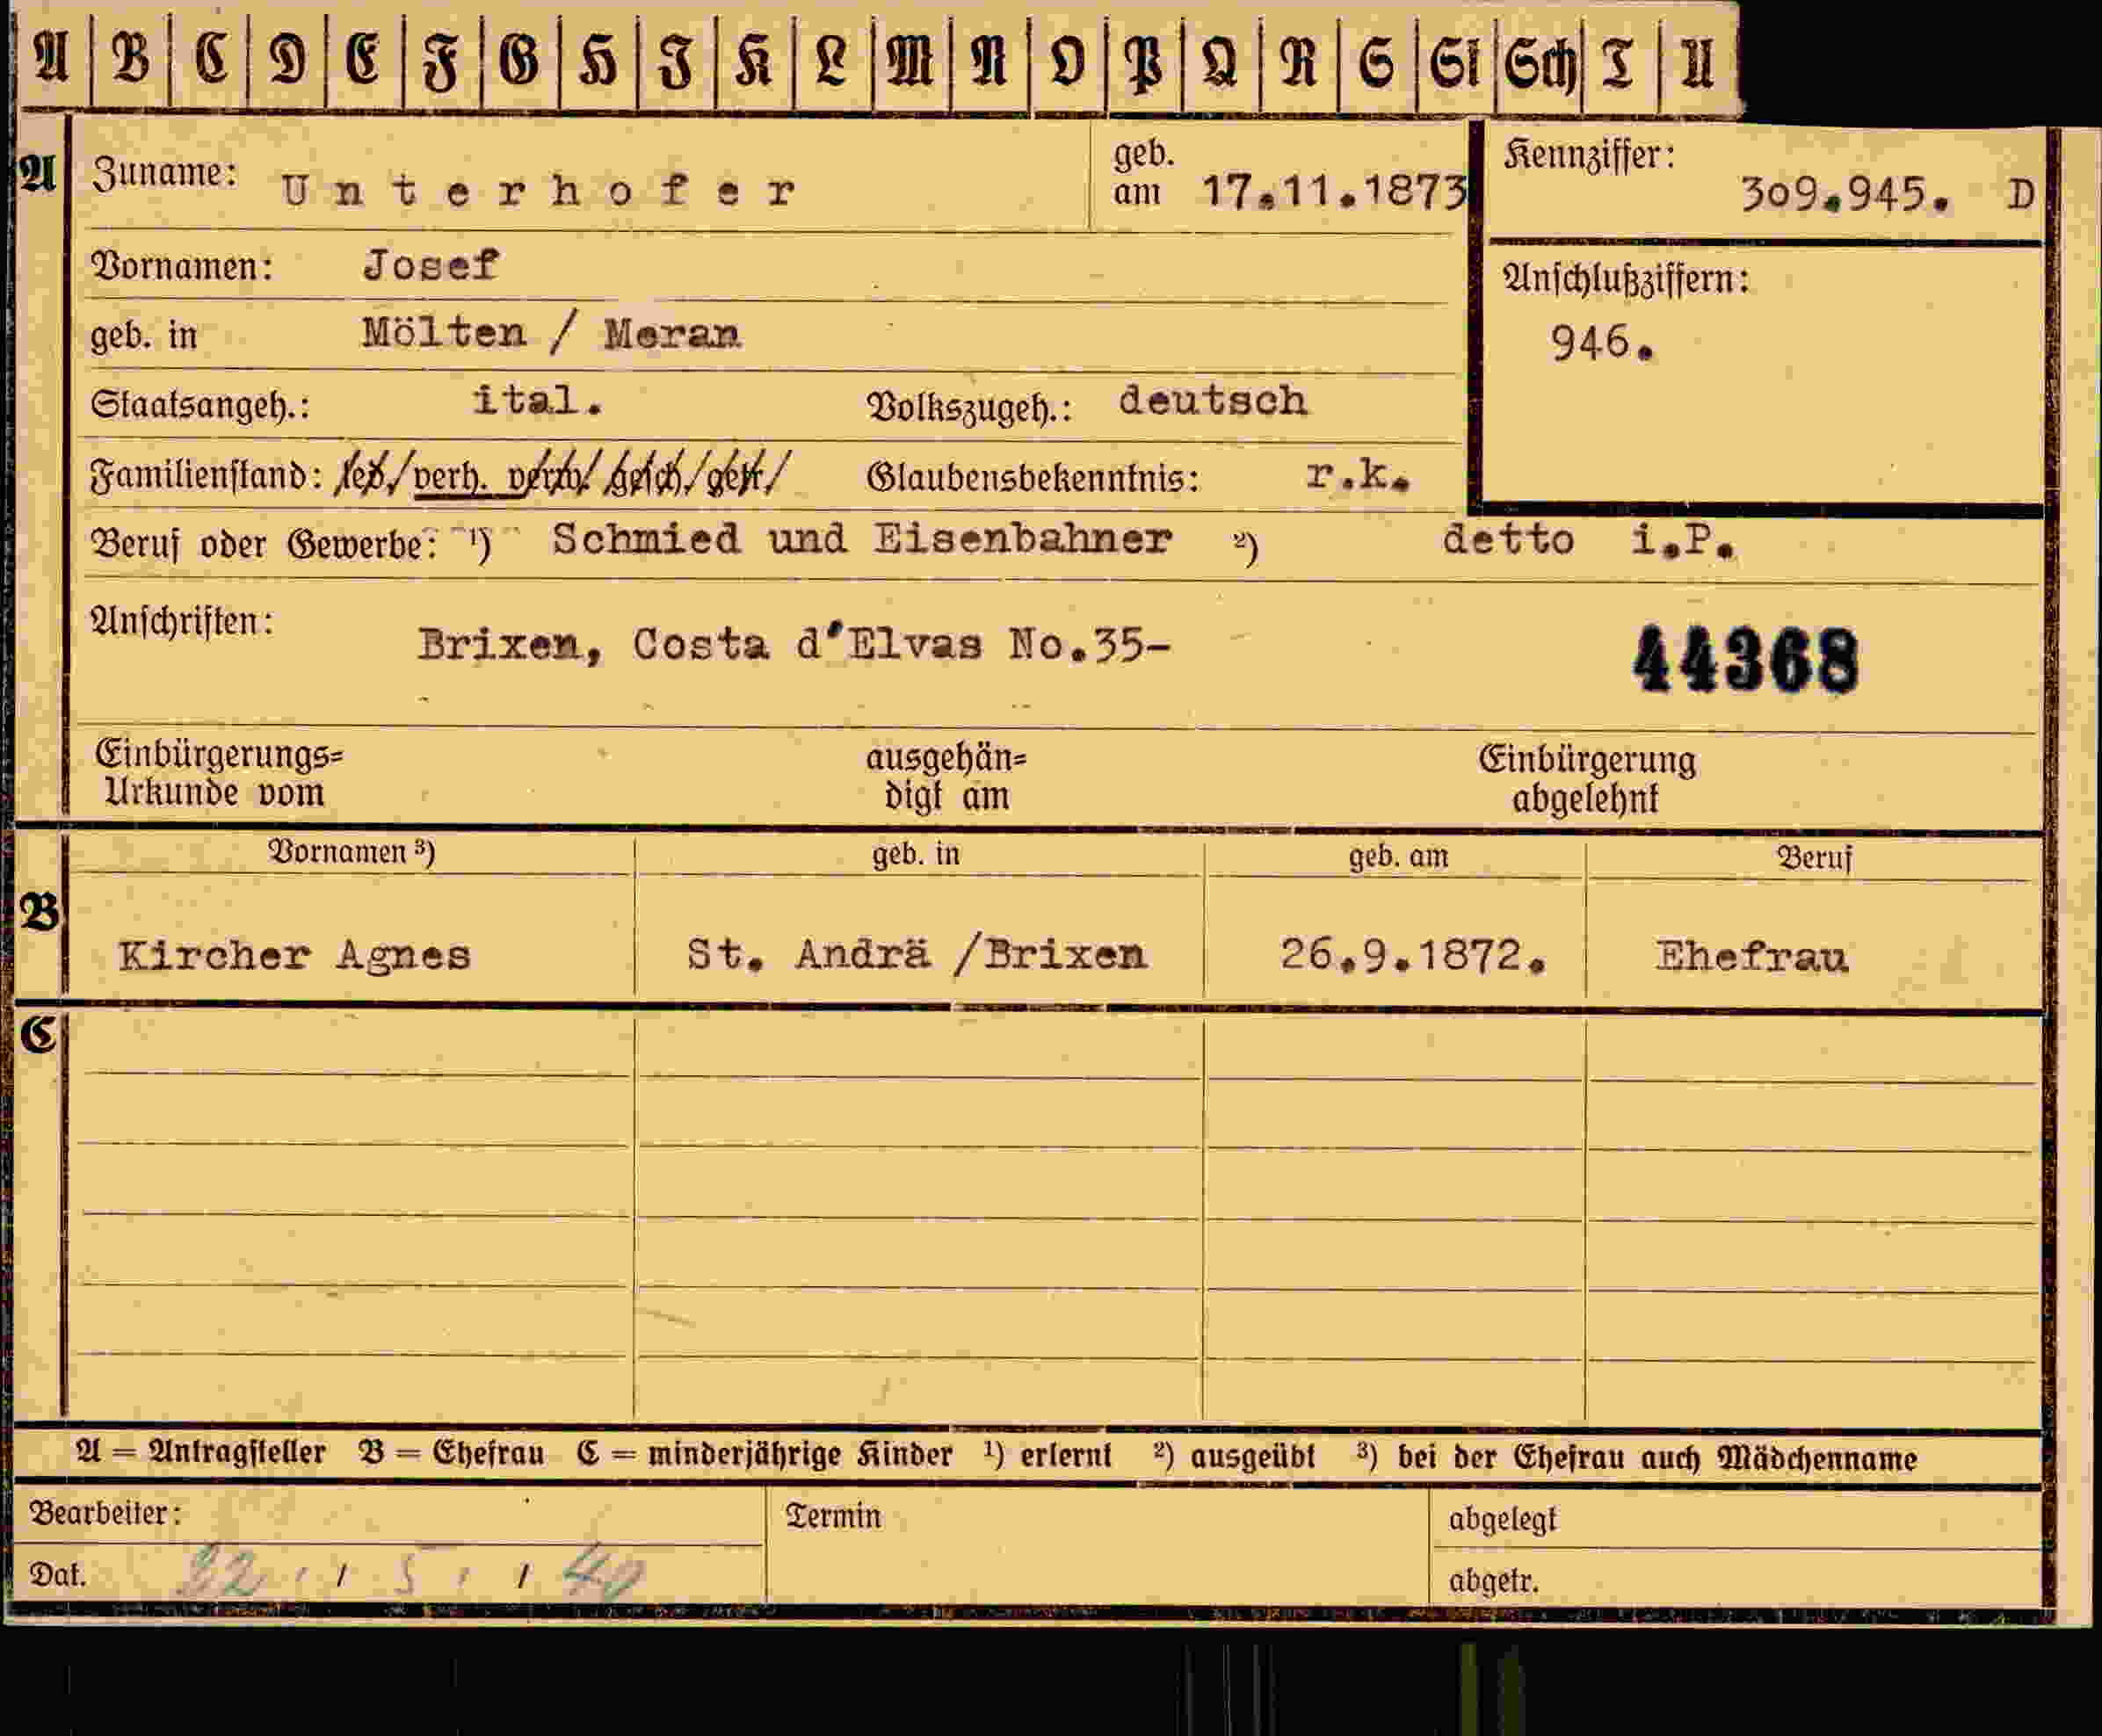 A B C D E F G H J K L M N O P Q R S St Sch T U
A Zuname: Unterhofer geb. am 17.11.1873 Kennziffer: 309.945. D
Vornamen: Josef Anschlußziffern:
geb. in Mölten / Meran 946.
Staatsangeh.: ital. Volkszugeh.: deutsch
Familienstand: led./verh. verw./gesch./getr./ Glaubensbekenntnis: r.k.
Beruf oder Gewerbe: ¹) Schmied und Eisenbahner ²) detto i.P.
Anschriften: Brixen, Costa d'Elvas No.35- 44368
Einbürgerungs= ausgehän= Einbürgerung
Urkunde vom digt am abgelehnt
Vornamen ³) geb. in geb. am Beruf
B Kircher Agnes St. Andrä /Brixen 26.9.1872. Ehefrau
C
A = Antragsteller B = Ehefrau C = minderjährige Kinder ¹) erlernt ²) ausgeübt ³) bei der Ehefrau auch Mädchenname
Bearbeiter: Termin abgelegt
Dat. 22 / 5 / 40 abgetr.